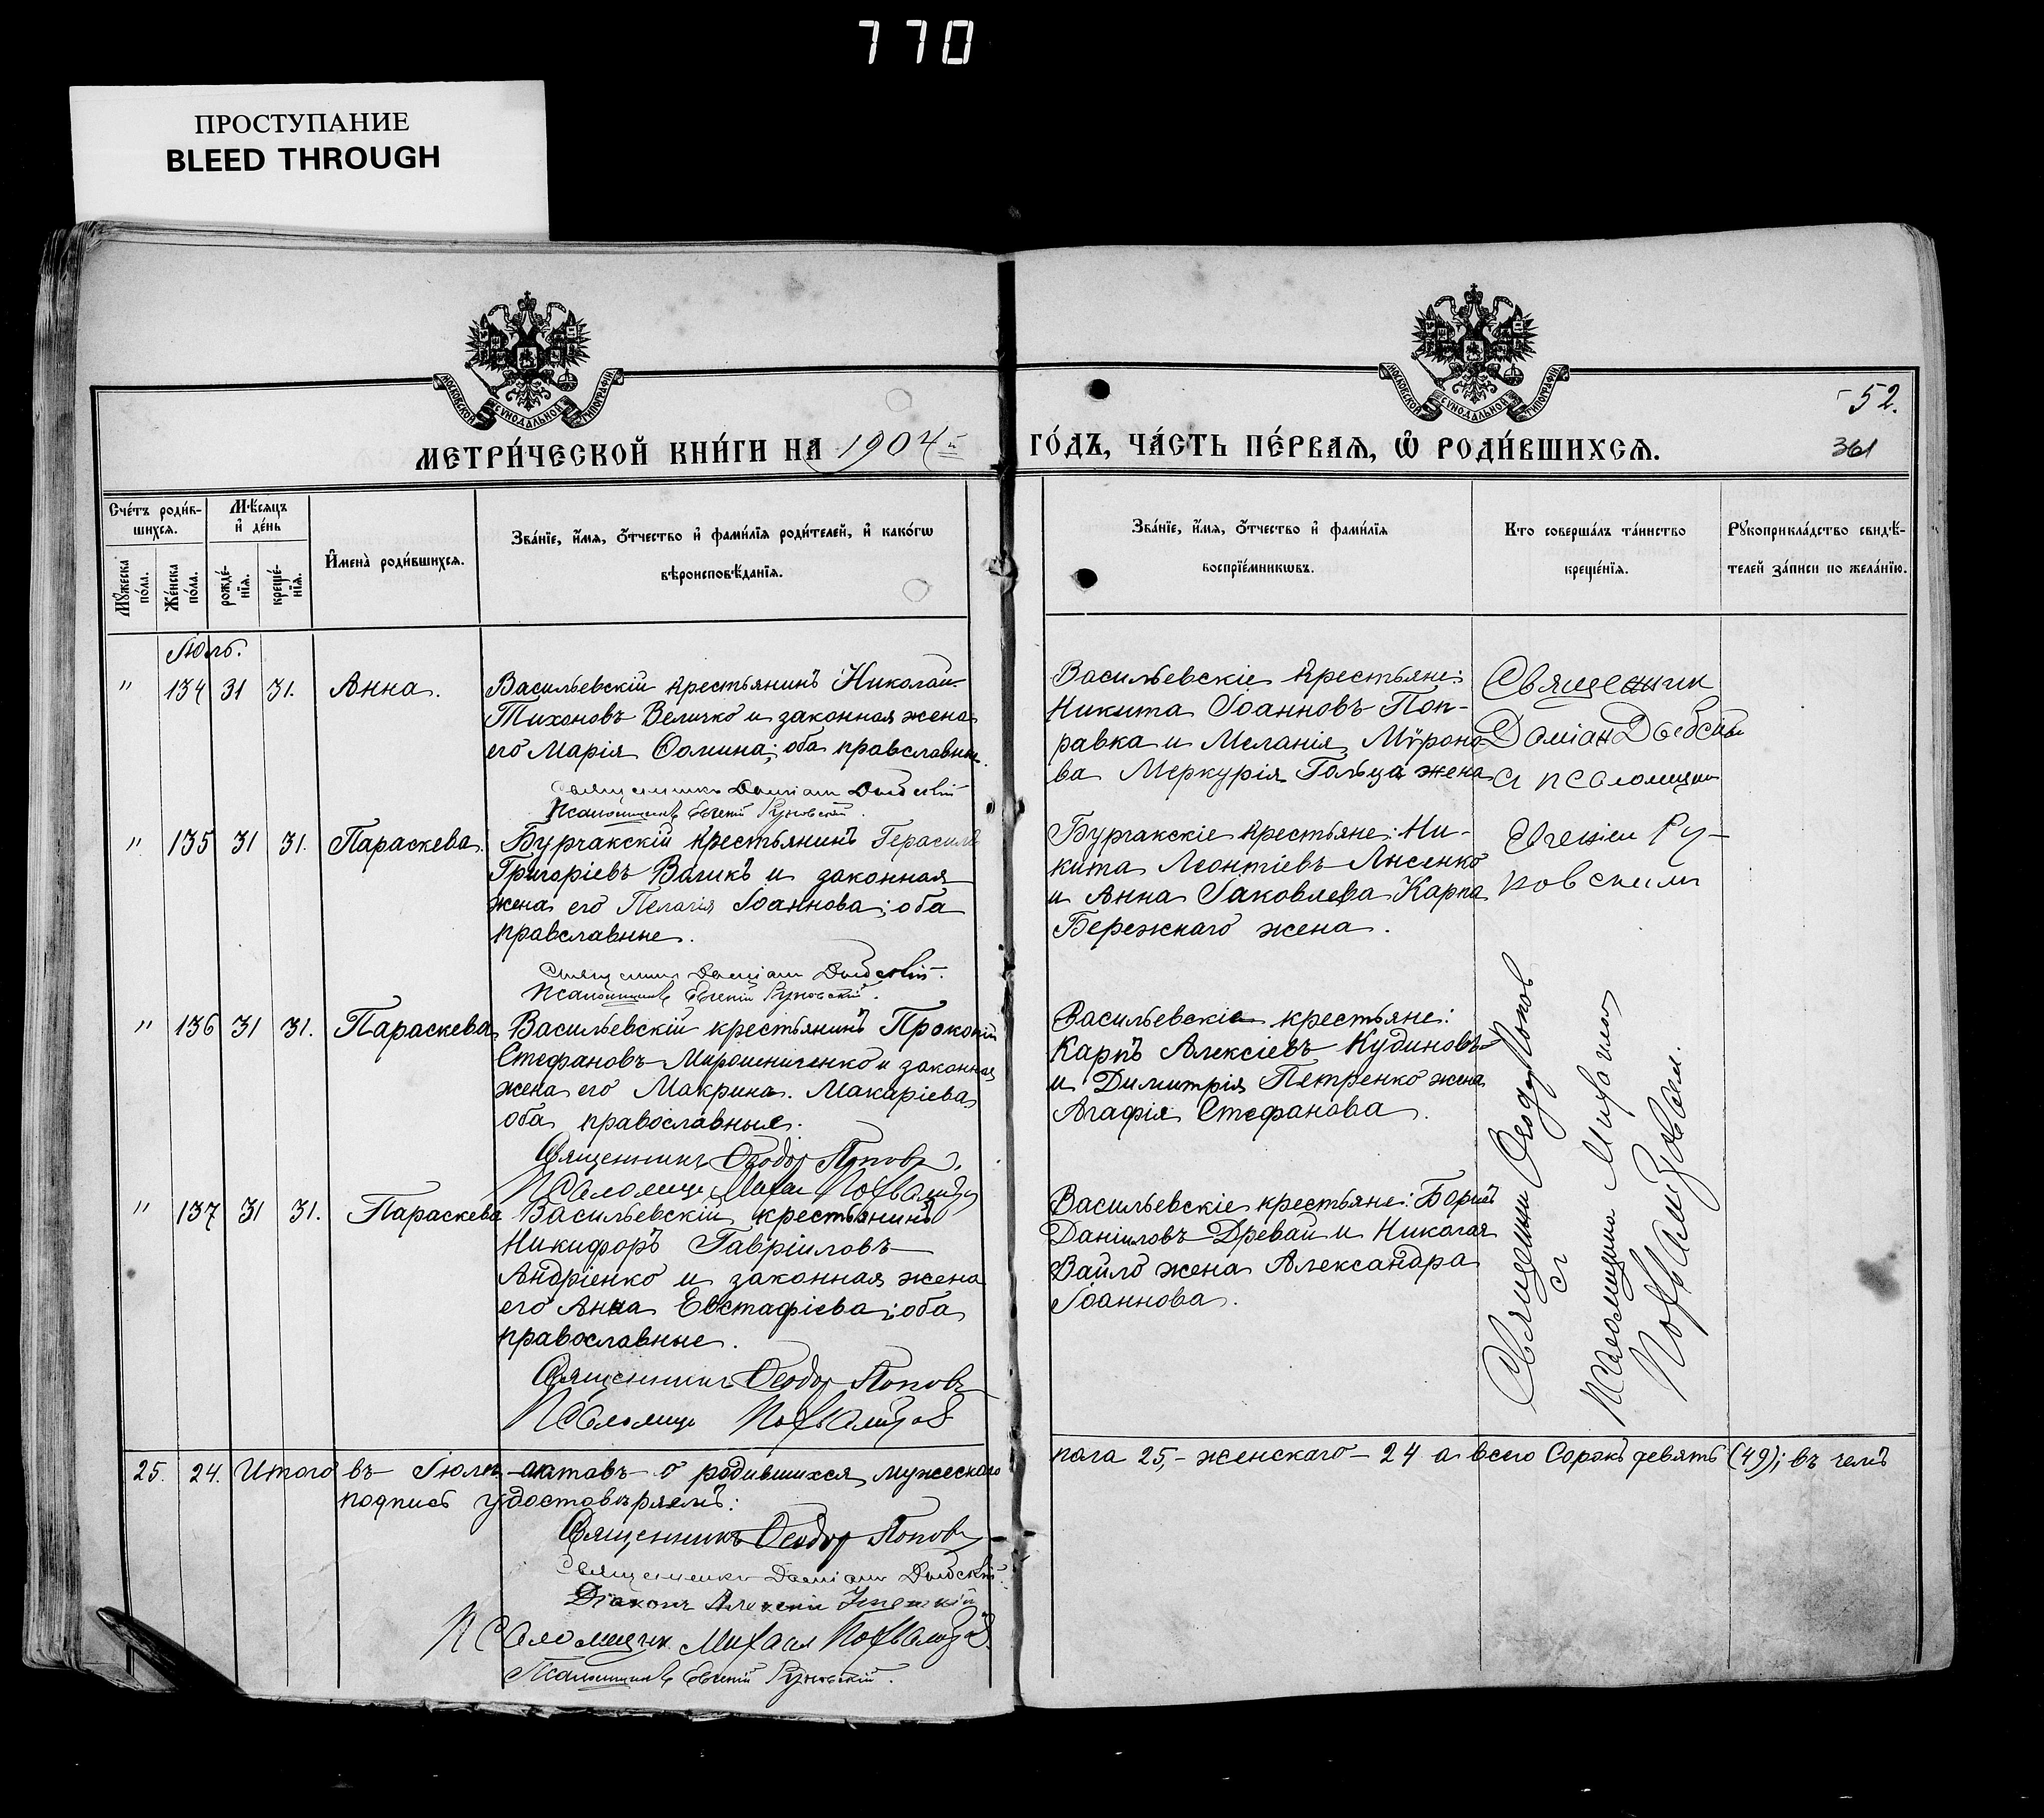 770
ПРОСТУПАНИЕ
BLEED THROUGH
МОСКОВСКОЙ СѴНОДАЛЬНОЙ ТИПОГРАФІИ
МОСКОВСКОЙ СѴНОДАЛЬНОЙ ТИПОГРАФІИ
52.
МЕТРИ́ЧЕСКОЙ КНИ́ГИ НА 1904
ГО́ДЪ, ЧА́СТЬ ПЕ́РВАѦ, Ѡ҆ РОДИ́ВШИХСѦ.
361
Сче́тъ роди́в-
шихся.
Мѣ́сяцъ
и҆ де́нь
Му́жеска
по́ла.
Же́нска
по́ла.
рожде́-
нїя.
креще́-
нїя.
И҆мена̀ роди́вшихся.
Зва́нїе, и҆́мя, ѻ҆́тчество и҆ фами́лїя роди́телей, и҆ како́гѡ
вѣроисповѣ́данїя.
Зва́нїе, и҆́мя, ѻ҆́тчество и҆ фами́лїя
воспрїе́мникѡвъ.
Кто соверша́лъ та́инство
креще́нїя.
Рукоприкла́дство свидѣ́-
телей за́писи по жела́нїю.
Іюль.
" 134 31 31. Анна.
Васильевскій крестьянинъ Николай
Тихоновъ Величко и законная жена
его Марія Ѳомина; оба православные.
Псаломщикъ Евгеній Руновскій.
Васильевскіе крестьяне:
Никита Іоанновъ Поп-
равка и Меланія Мѵроно-
ва Меркурія Гольца жена
Священник
Даміан
с псаломщиком
Евгеніем Ру-
новским
" 135 31 31. Параскева.
Бурчакскій крестьянинъ Герасимъ
Григоріевъ Вагикъ и законная
жена его Пелагія Іоаннова; оба
православные.
Псаломщикъ Евгеній Руновскій.
Бурчакскіе крестьяне: Ни-
кита Леонтіевъ Лысенко
и Анна Іаковлева Карпа
Бережнаго жена.
" 136 31 31. Параскева
Васильевскій крестьянинъ Прокопій
Стефановъ Мирошниченко и законная
жена его Макрина Макаріева
оба православные.
Священникъ Ѳеодор Поповъ.
Псаломщ. Михаил
Васильевскіе крестьяне:
Карпъ Алексіевъ Кудиновъ
и Димитрія Петренко жена
Агафія Стефанова.
Священник Ѳеодор Попов
с
псаломщиком Михаилом
" 137 31 31. Параскева
Васильевскій крестьянинъ
Никифоръ Гавріиловъ
Андріенко и законная жена
его Анна Евстафіева; оба
православные.
Священникъ Ѳеодор Поповъ
Псаломщ.
Васильевскіе крестьяне: Борисъ
Даніиловъ Древаль и Николая
Вайло жена Александра
Іоаннова.
25. 24. Итого въ Іюлѣ актовъ о родившихся мужескаго
пола 25,- женскаго - 24 а всего Сорокъ девять (49); въ чемъ
подписъ удостовѣряемъ:
Священникъ Ѳеодор Поповъ
Діаконъ Алексій
Псаломщик Михаил
Псаломщикъ Евгеній Руновскій.